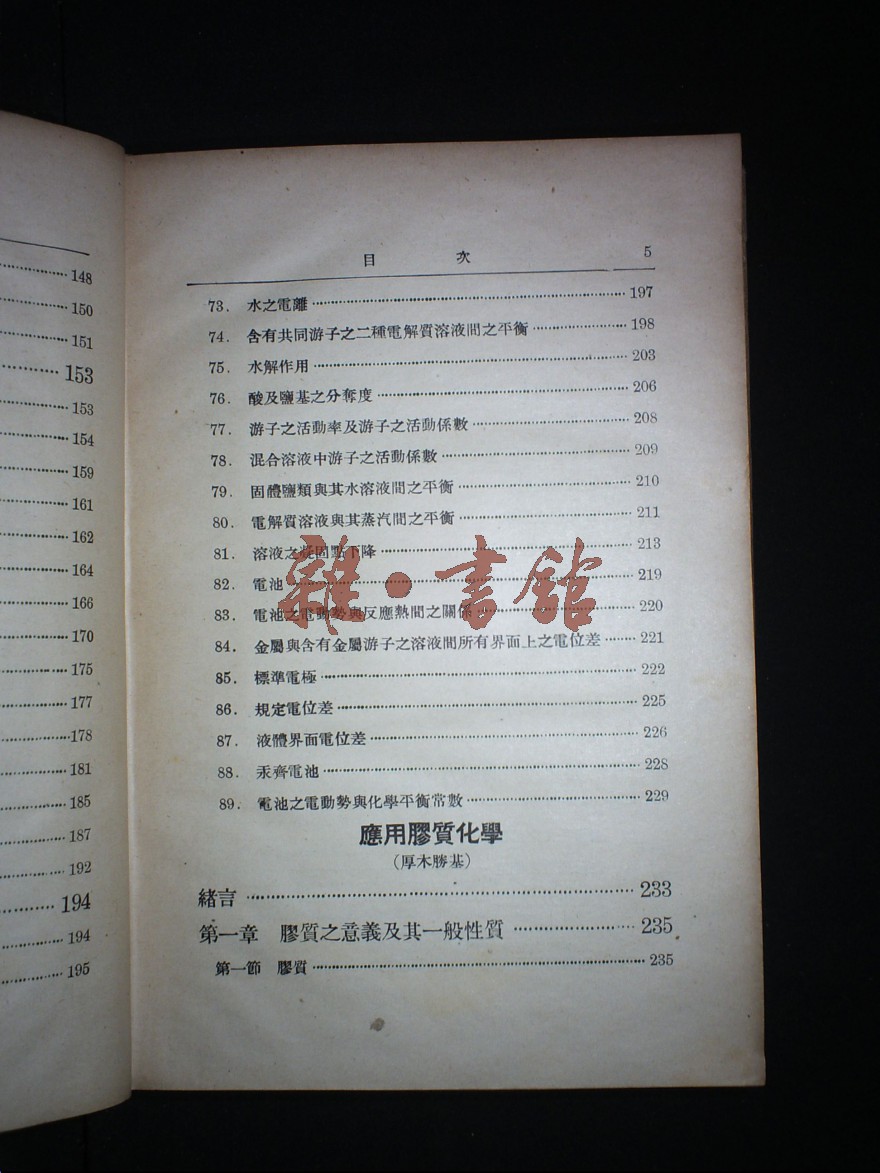 148
150
151
153
153
154
159
161
162
164
166
170
175
177
178
181
185
187
192
194
194
195
目 次 5
73. 水之電離 197
74. 含有共同游子之二種電解質溶液間之平衡 198
75. 水解作用 203
76. 酸及鹽基之分奪度 206
77. 游子之活動率及游子之活動係數 208
78. 混合溶液中游子之活動係數 209
79. 固體鹽類與其水溶液間之平衡 210
80. 電解質溶液與其蒸汽間之平衡 211
81. 溶液之凝固點下降 213
82. 電池 219
83. 電池之電動勢與反應熱間之關係 220
84. 金屬與含有金屬游子之溶液間所有界面上之電位差 221
85. 標準電極 222
86. 規定電位差 225
87. 液體界面電位差 226
88. 汞齊電池 228
89. 電池之電動勢與化學平衡常數 229
應用膠質化學
(厚木勝基)
緒言 233
第一章 膠質之意義及其一般性質 235
第一節 膠質 235
雜·書館